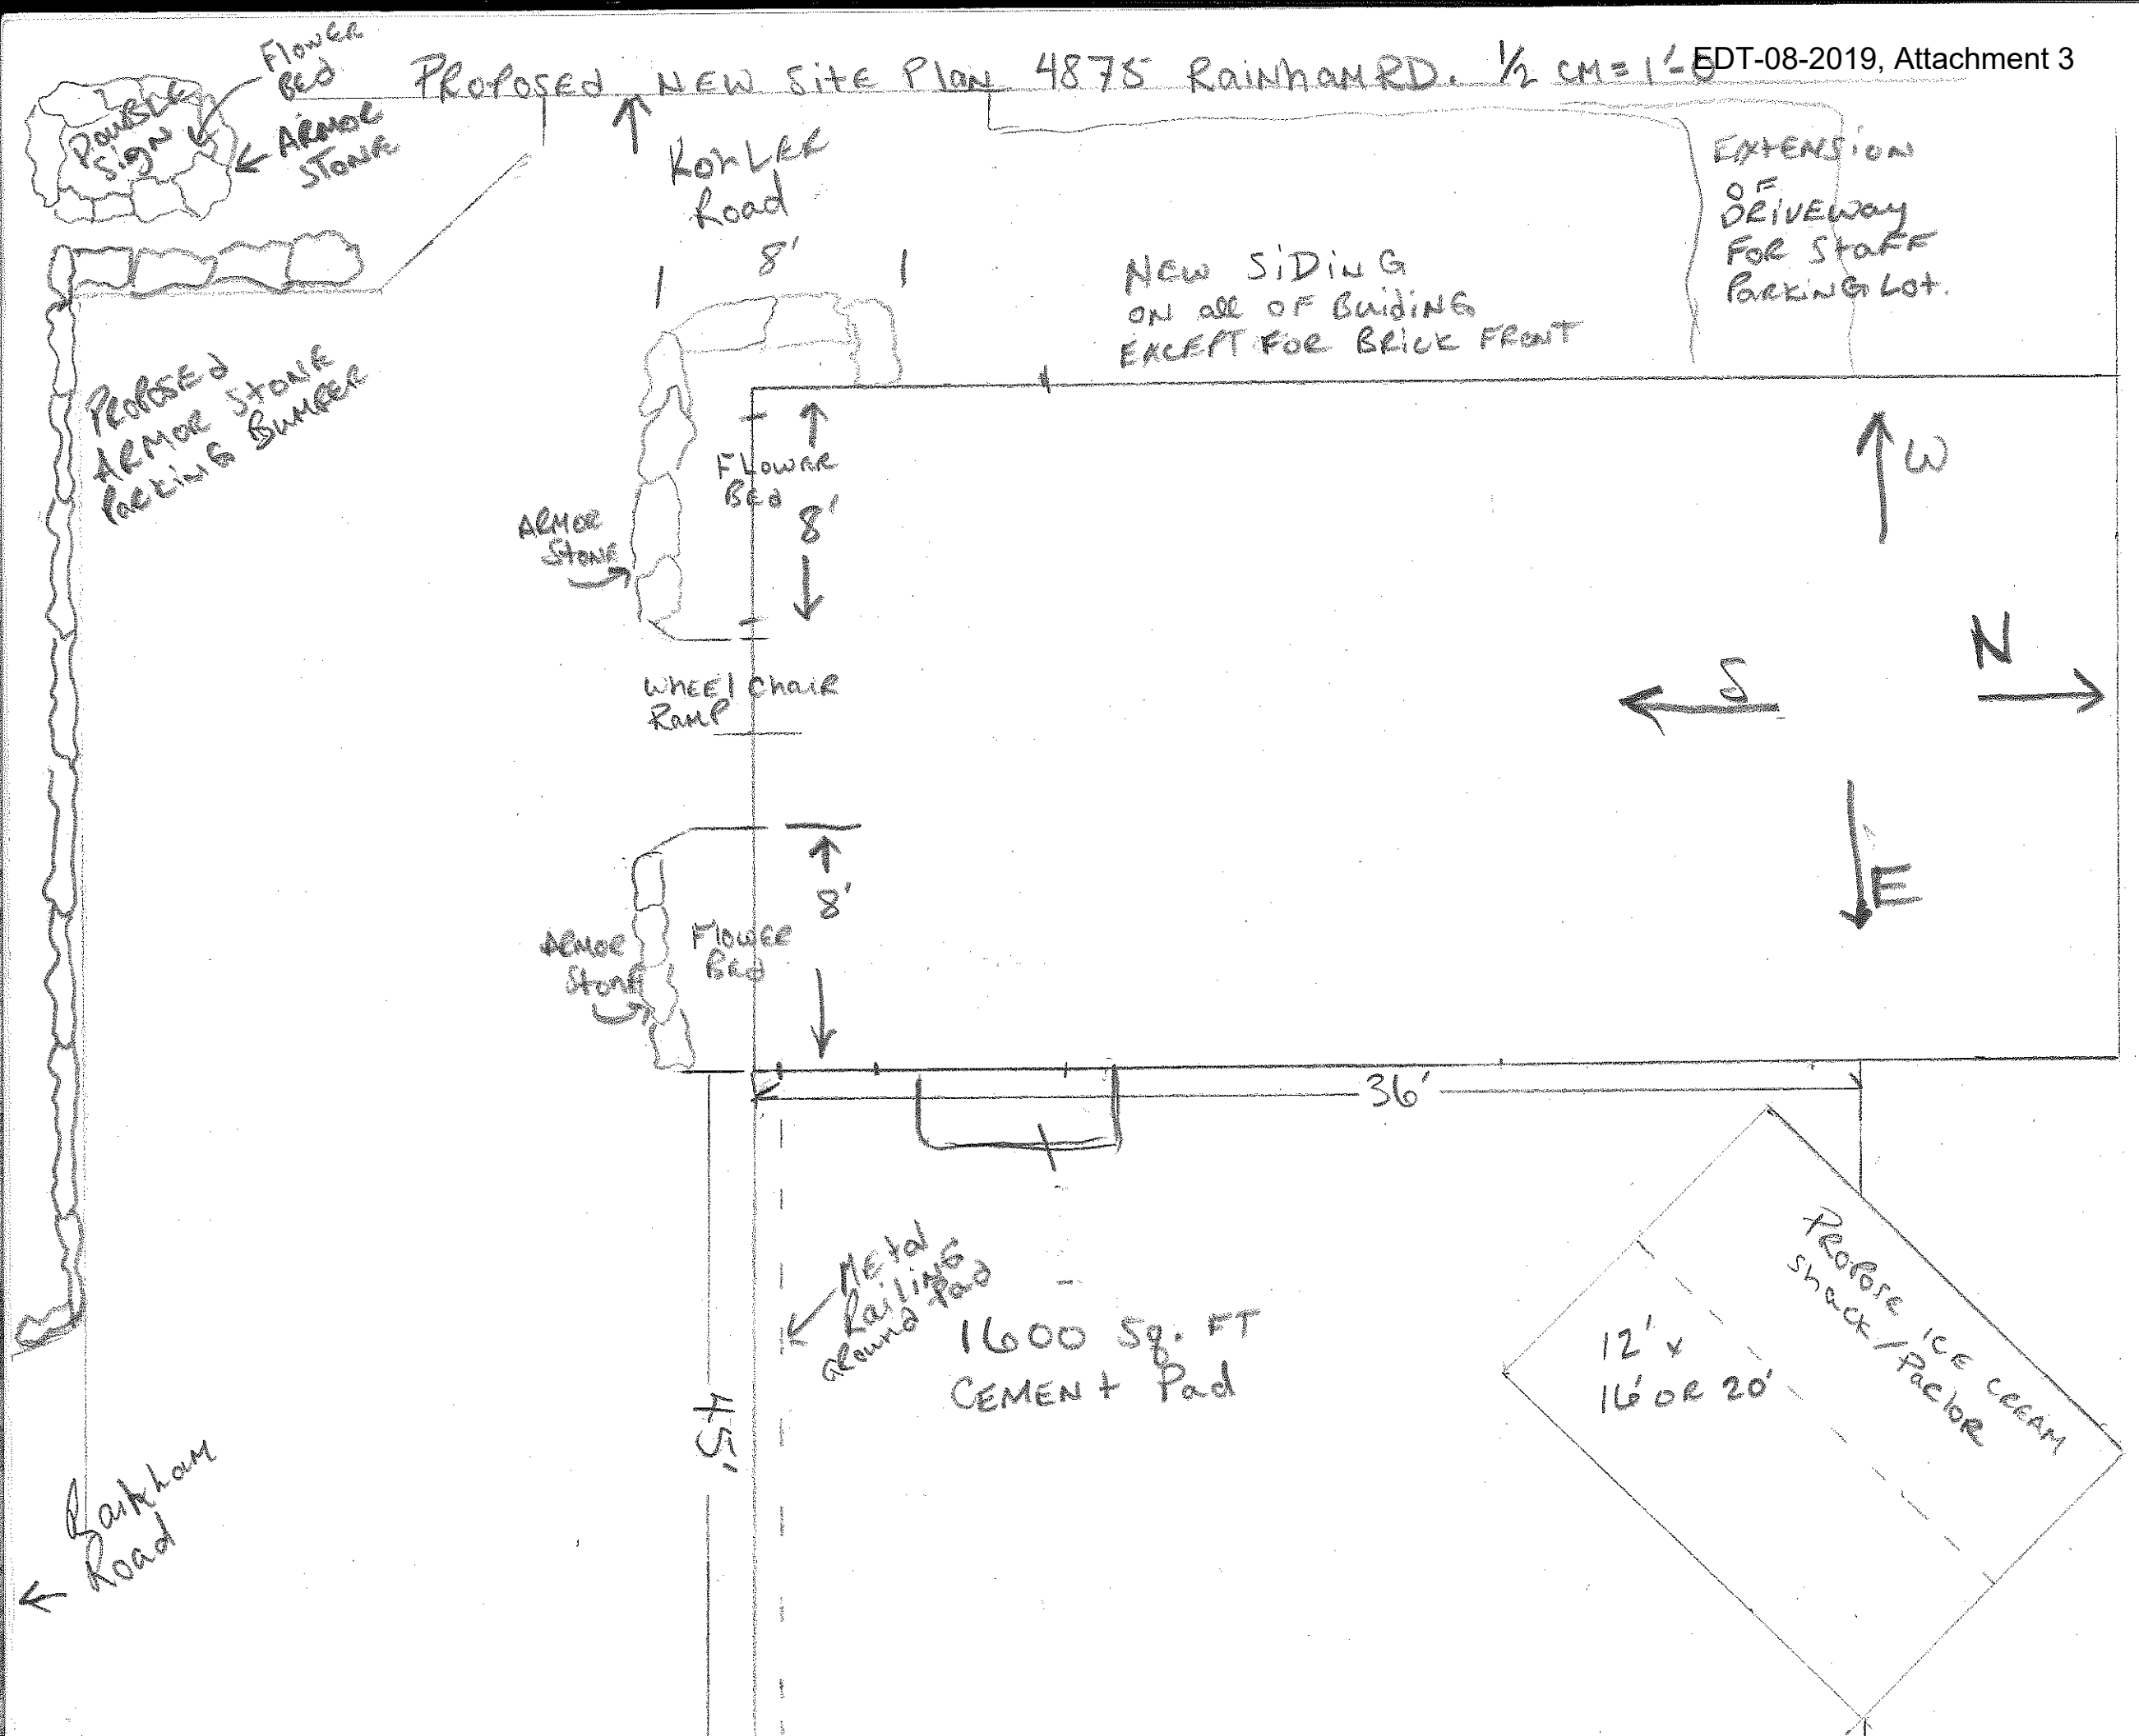 EDT-08-2019, Attachment 3
PROPOSED NEW SitE PlaN 4875 RainhamRD. 1/2 CM = 1'-0
FlowER
BEd
DOUBLE
Sign
ARMOR
STONE
KohLER
Road
8'
EXTENSiON
OF
DRiVEway
FOR StaFF
ParkiNG Lot.
NEW SiDiNG
ON all OF BuidiNG
EXCEPT FOR BRiCK FRONT
PROPOSEd
ARMOR StONE
ParkiNG BumpER
FLOWER
BEd
8'
ARMOR
StONE
W
N
S
E
WhEElChaiR
RamP
8'
ARMOR
StONE
FlowER
BEd
36'
MEtal
RailiNG
aRound Pad
1600 Sq. FT
CEMENt Pad
45'
PROPOSE iCE CREAM
ShaCK/ParloR
12' x
16' OR 20'
Rainham
Road